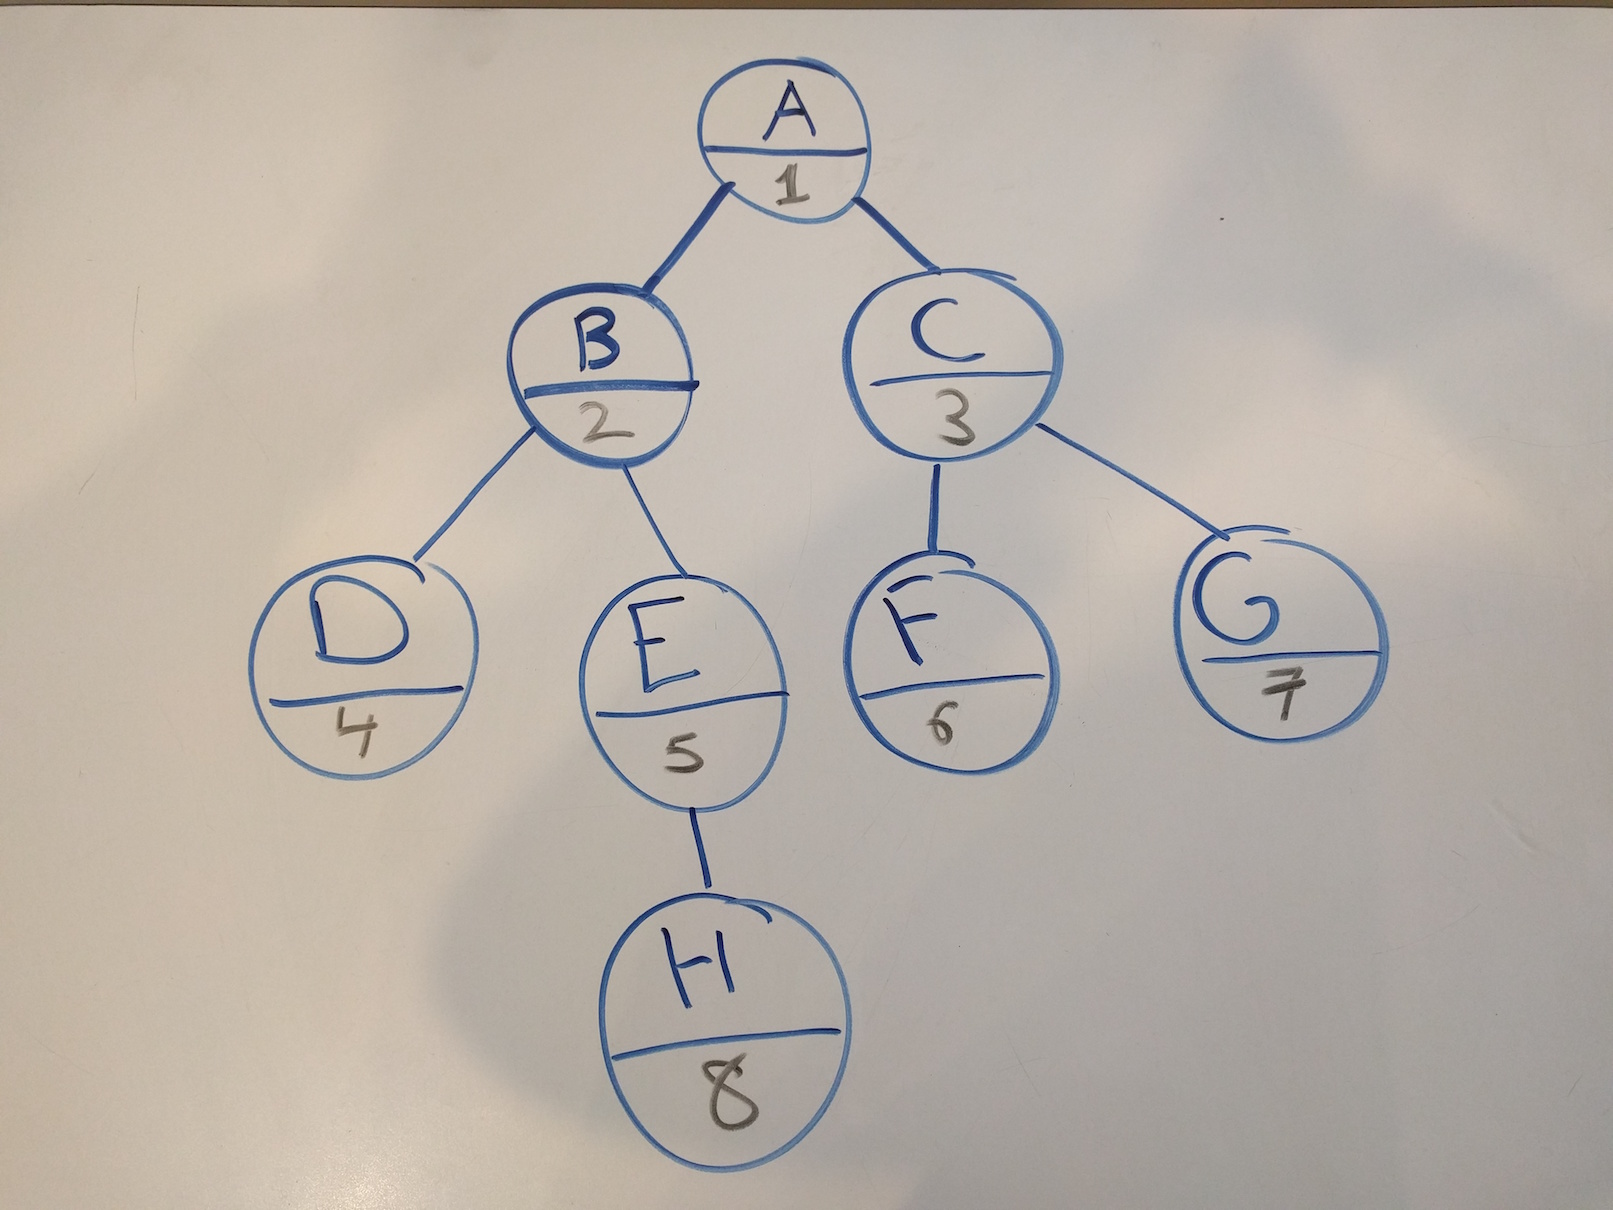 A
1
B
2
C
3
D
4
E
5
F
6
G
7
H
8